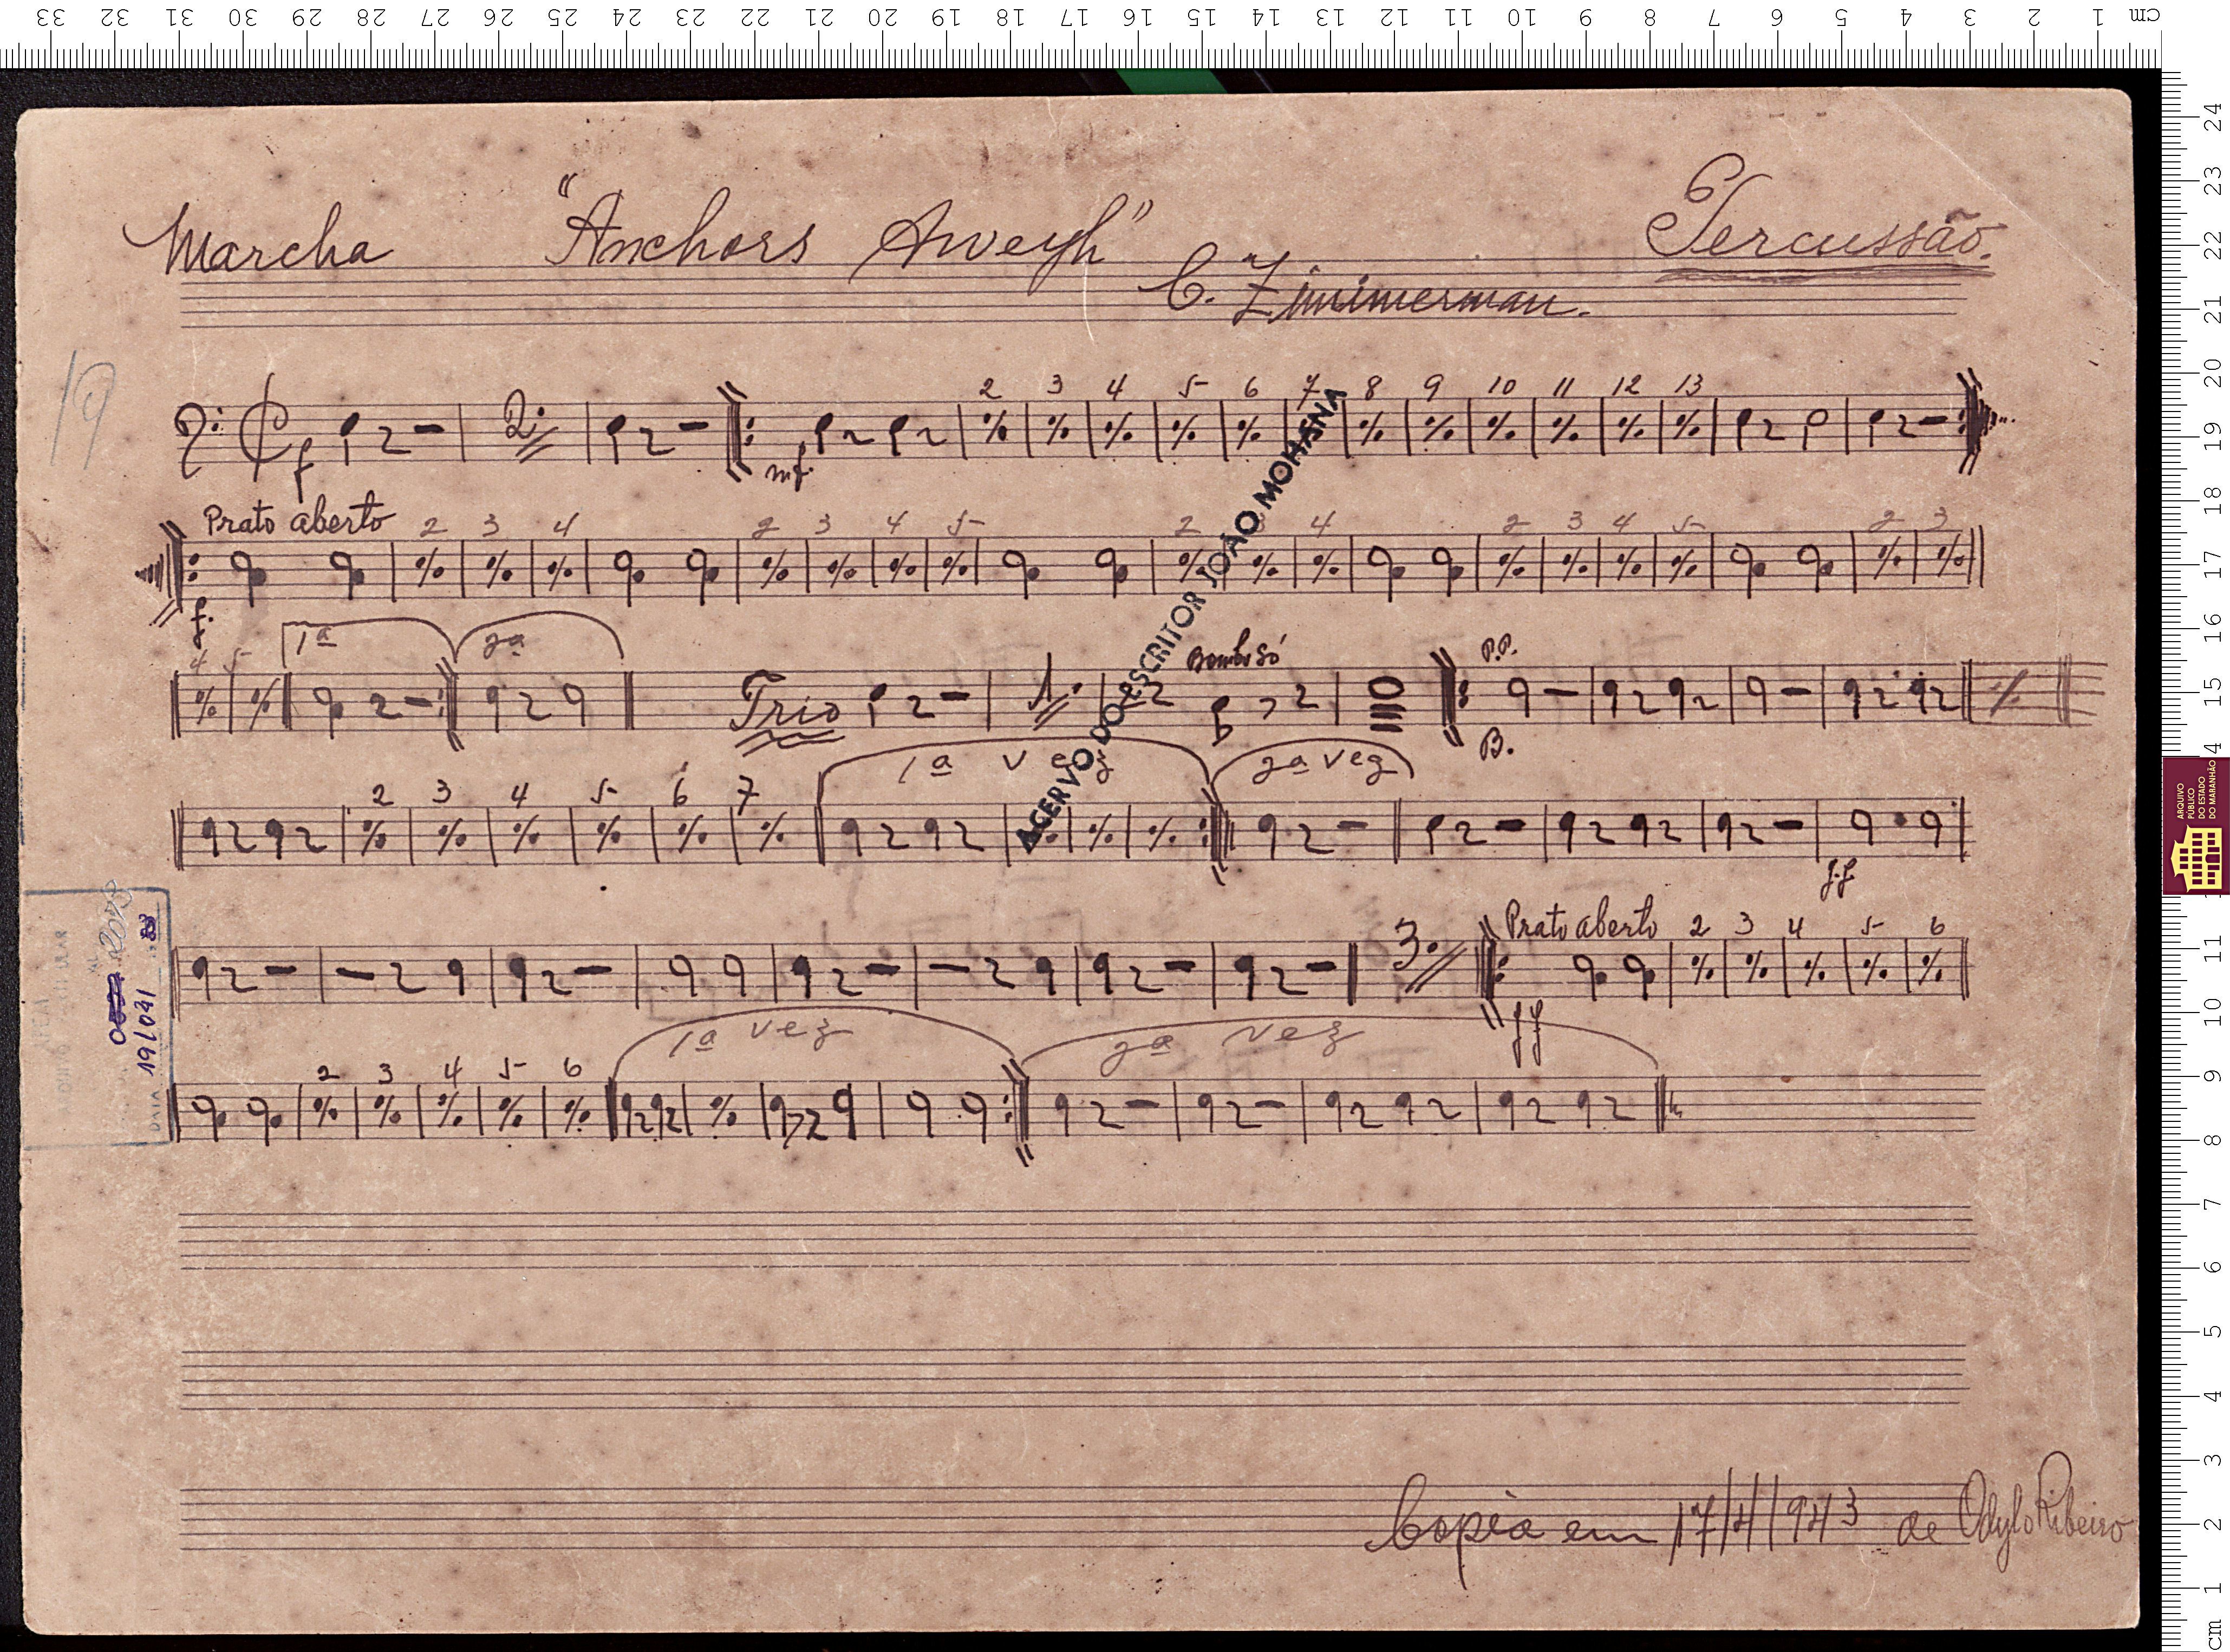 33 32 31 30 29 28 27 26 25 24 23 22 21 20 19 18 17 16 15 14 13 12 11 10 9 8 7 6 5 4 3 2 1 cm
Marcha "Anchors Aweyh" Percussão.
C. Zimimerman.
19
2 3 4 5 6 7 8 9 10 11 12 13
f 2. mf.
Prato aberto 2 3 4 2 3 4 5 2 3 4 2 3 4 5 2 3
f.f.
4 5 1ª 2ª Bombo só P.P.
Trio 1. B.
1ª vez 2ª vez
2 3 4 5 6 7
f.f
Prato aberto 2 3 4 5 6
3.
ff
1ª vez 2ª vez
2 3 4 5 6
Copia em 17/4/943 de Odylo Ribeiro
ACERVO DO ESCRITOR JOÃO MOHANA
DATA 19/031
24 23 22 21 20 19 18 17 16 15 14 11 10 9 8 7 6 5 4 3 2 1 cm
ARQUIVO
PÚBLICO
DO ESTADO
DO MARANHÃO